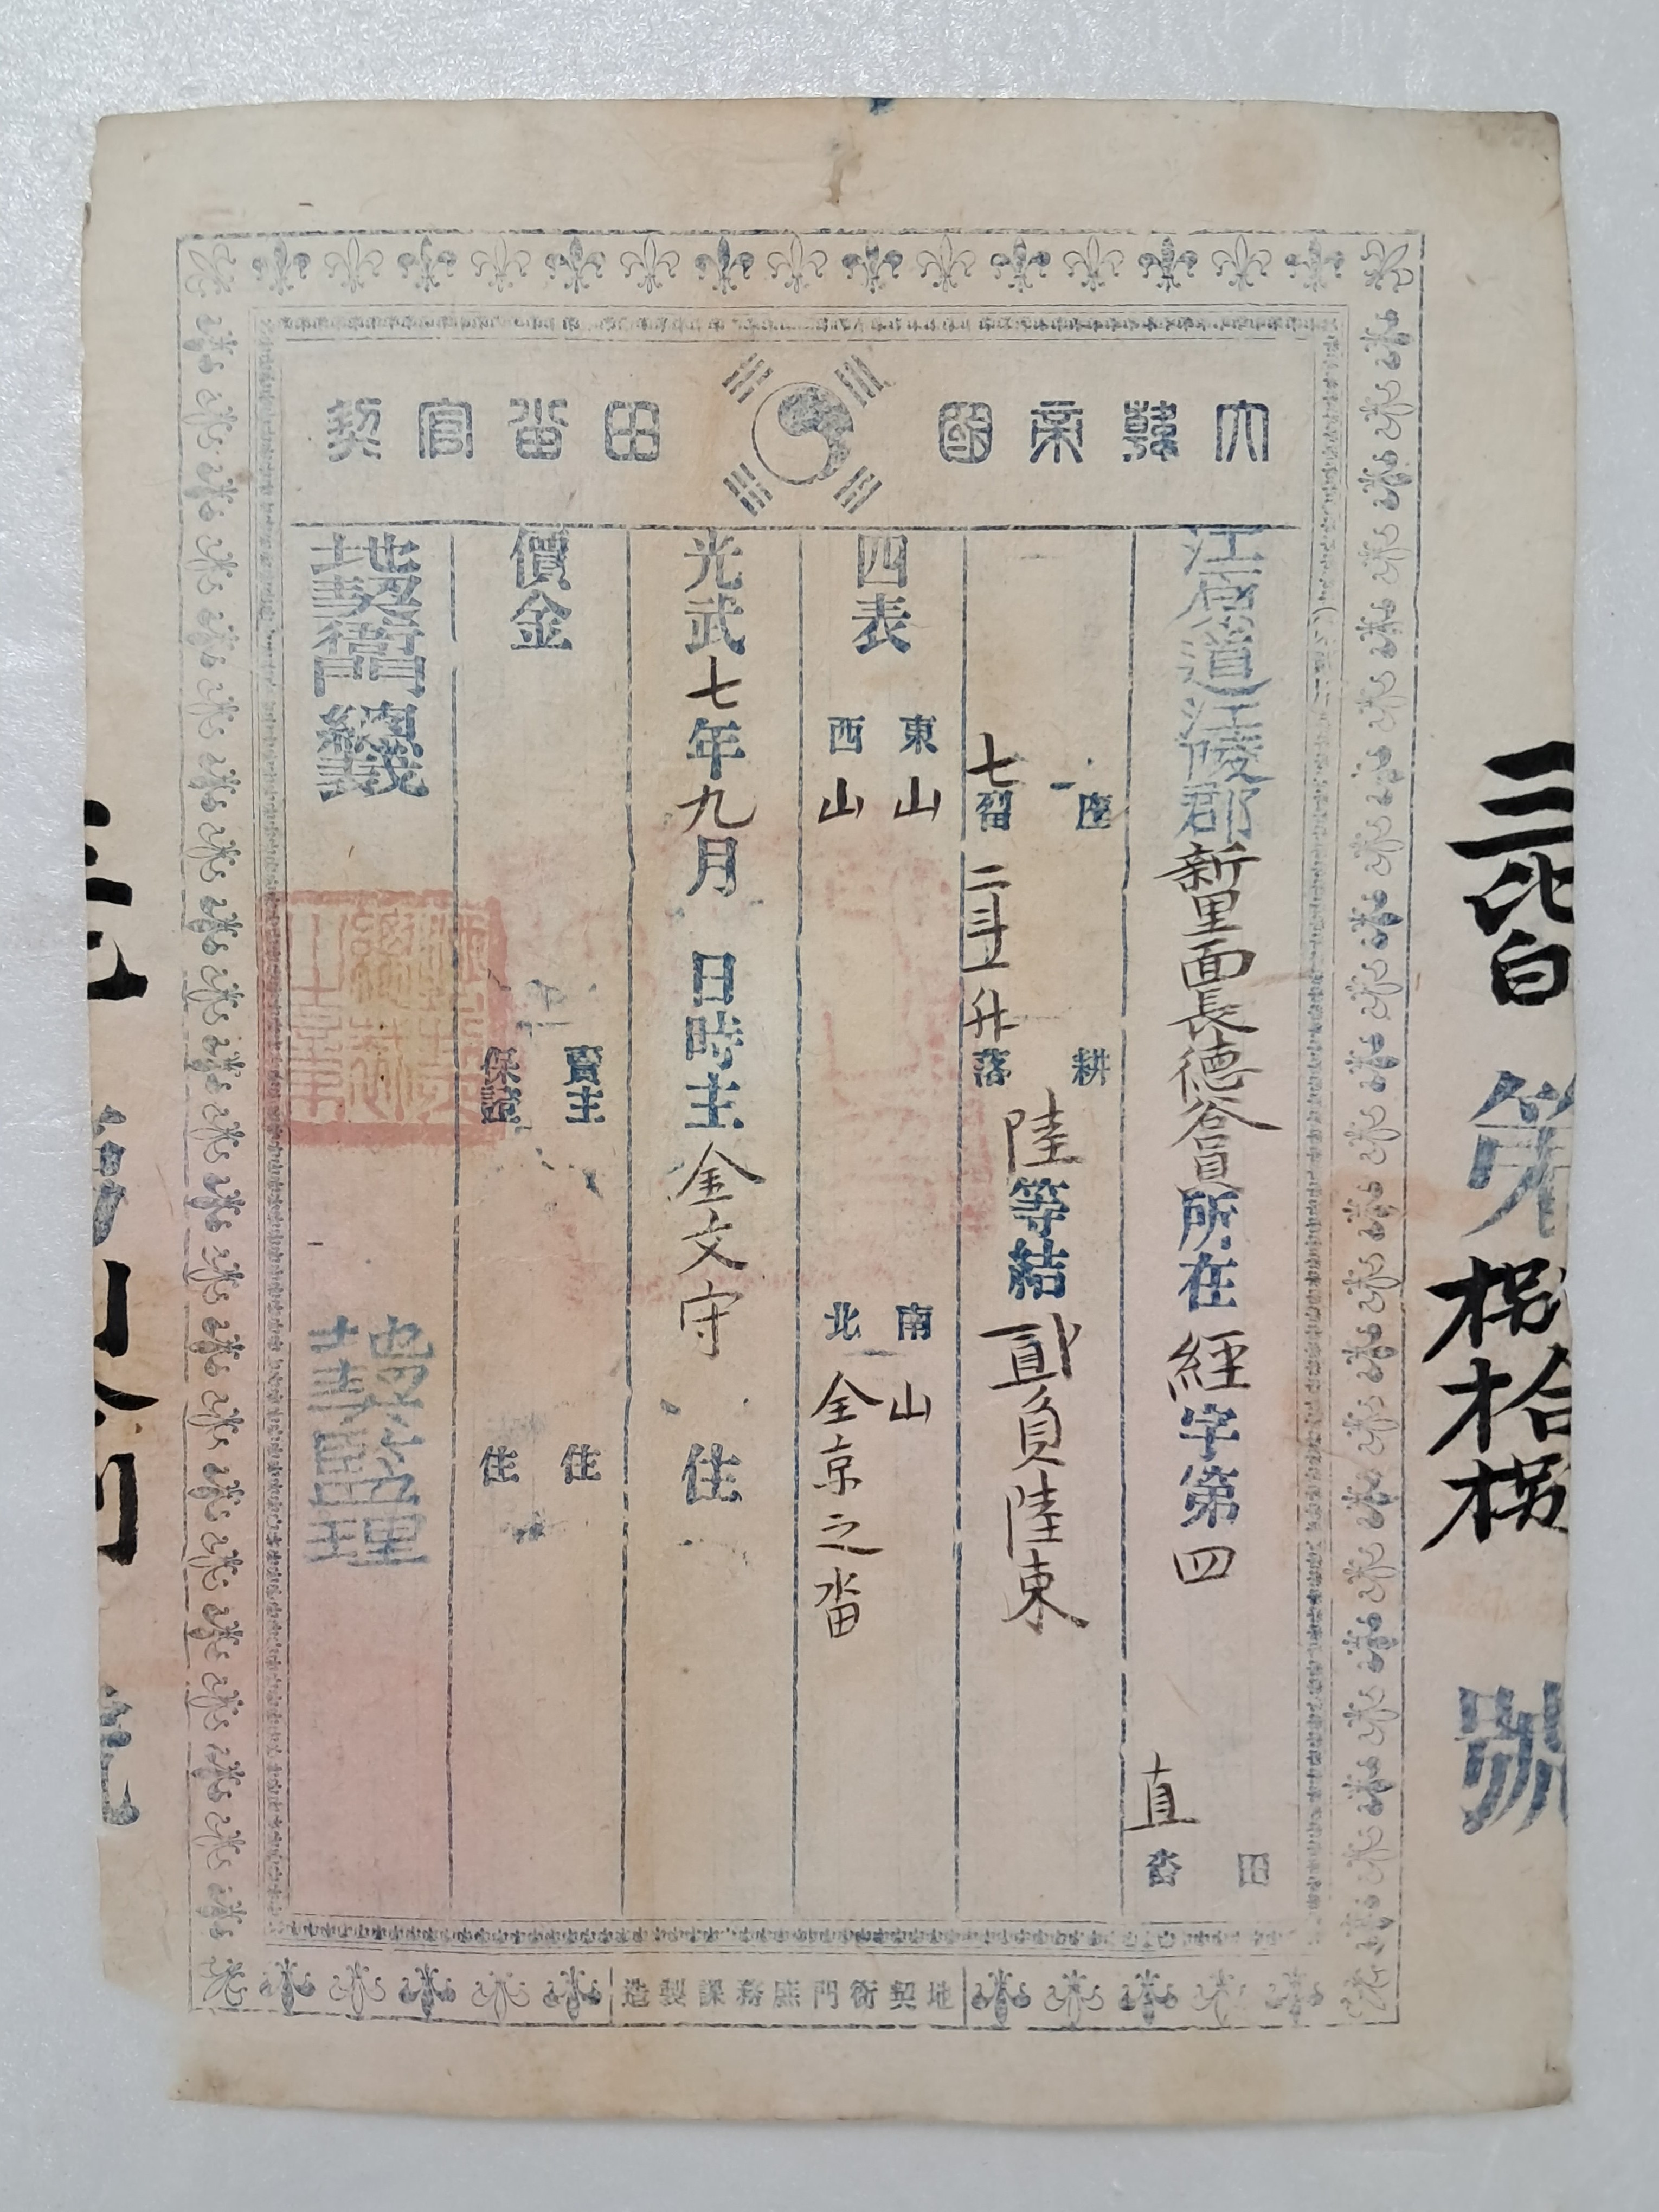 大韓帝國田畓官契
江原道江陵郡新里面長德谷員所在 經字第四 直 田畓
一座 耕
七㽞 二斗 升落 陸等結 貳負陸束
四表 東山 南山
西山 北 金京之畓
光武七年九月 日時主 金文守 住
價金 賣主 住
保證 住
地契衙門總裁 監理
地契衙門庶務課製造
三百 第 拾 號